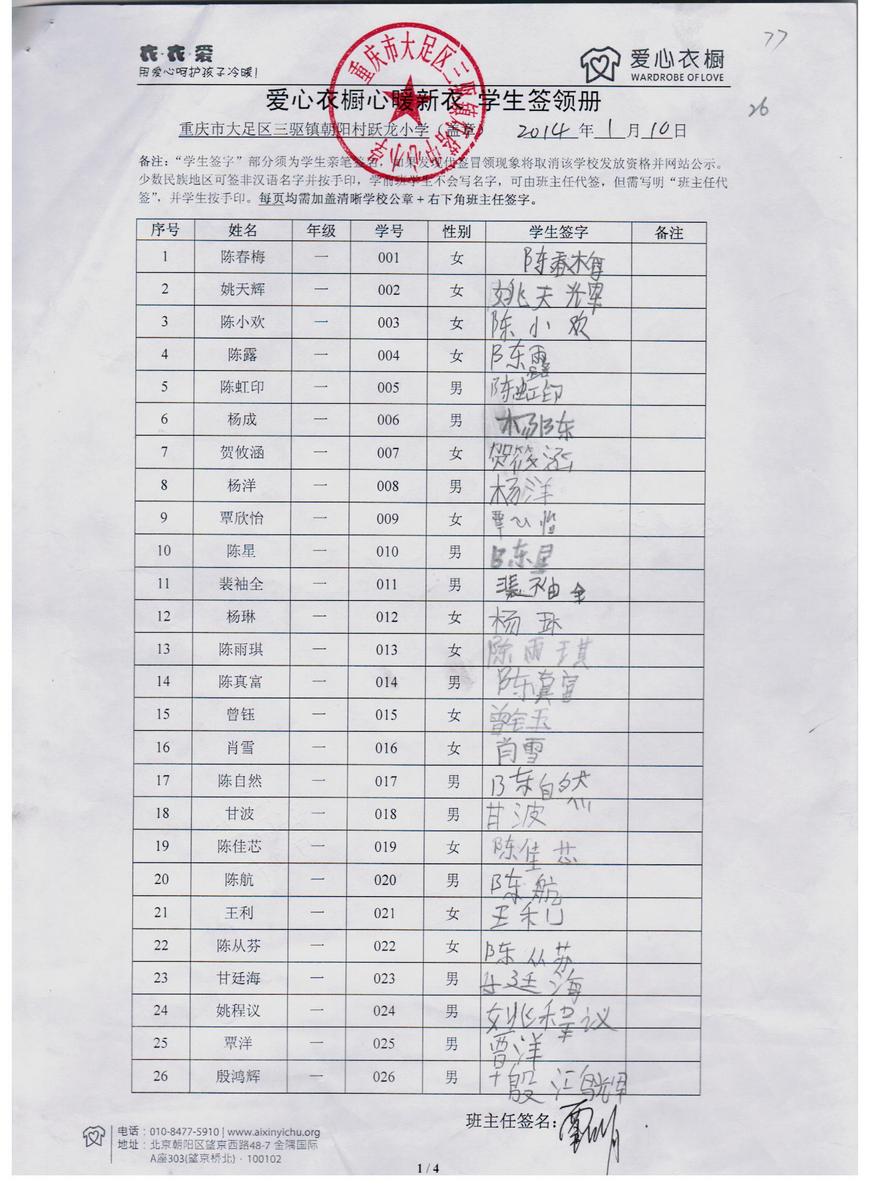 衣·衣·爱
用爱心呵护孩子冷暖!
爱心衣橱
WARDROBE OF LOVE
77
26
重庆市大足区三驱镇
中心小学
爱心衣橱心暖新衣 学生签领册
重庆市大足区三驱镇朝阳村跃龙小学(盖章) 2014年1月10日
备注:“学生签字”部分须为学生亲笔签名,如果发现代签冒领现象将取消该学校发放资格并网站公示。
少数民族地区可签非汉语名字并按手印,学前班学生不会写名字,可由班主任代签,但需写明“班主任代
签”,并学生按手印。每页均需加盖清晰学校公章+右下角班主任签字。
序号 姓名 年级 学号 性别 学生签字 备注
1 陈春梅 一 001 女 陈春梅
2 姚天辉 一 002 女 姚天辉
3 陈小欢 一 003 女 陈小欢
4 陈露 一 004 女 陈露
5 陈虹印 一 005 男 陈虹印
6 杨成 一 006 男 杨陈
7 贺攸涵 一 007 女 贺筱涵
8 杨洋 一 008 男 杨洋
9 覃欣怡 一 009 女 覃心怡
10 陈星 一 010 男 陈星
11 裴袖全 一 011 男 裴袖全
12 杨琳 一 012 女 杨
13 陈雨琪 一 013 女 陈雨琪
14 陈真富 一 014 男 陈真富
15 曾钰 一 015 女 曾钰
16 肖雪 一 016 女 肖雪
17 陈自然 一 017 男 陈自然
18 甘波 一 018 男 甘波
19 陈佳芯 一 019 女 陈佳芯
20 陈航 一 020 男 陈航
21 王利 一 021 女 王利
22 陈从芬 一 022 女 陈从苏
23 甘廷海 一 023 男 甘廷海
24 姚程议 一 024 男 姚程议
25 覃洋 一 025 男 覃洋
26 殷鸿辉 一 026 男 殷鸿辉
班主任签名:
电话:010-8477-5910 | www.aixinyichu.org
地址:北京朝阳区望京西路48-7 金隅国际
A座303(望京桥北) · 100102
1 / 4